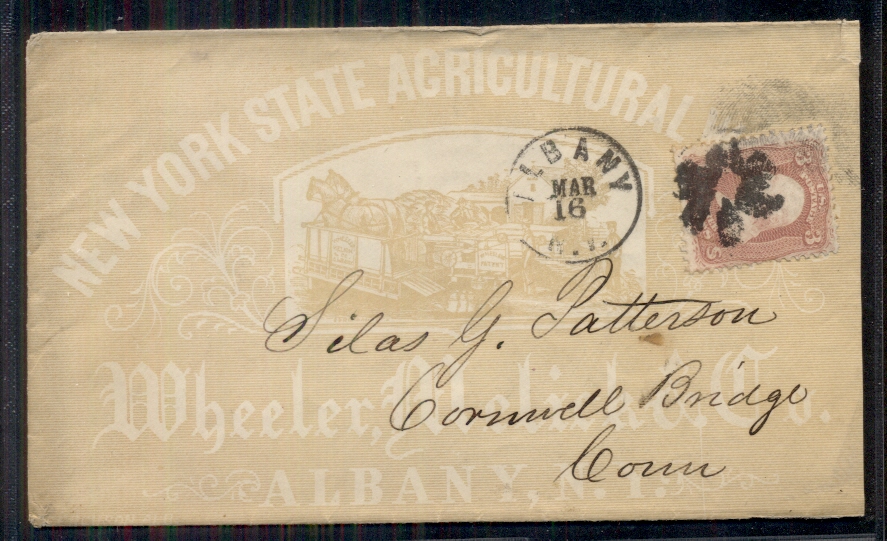 NEW YORK STATE AGRICULTURAL
ALBANY
MAR
16
N.Y.
3 3
Silas G. Patterson
Wheeler, Melick & Co.
Cornwell Bridge
Conn
ALBANY, N.Y.